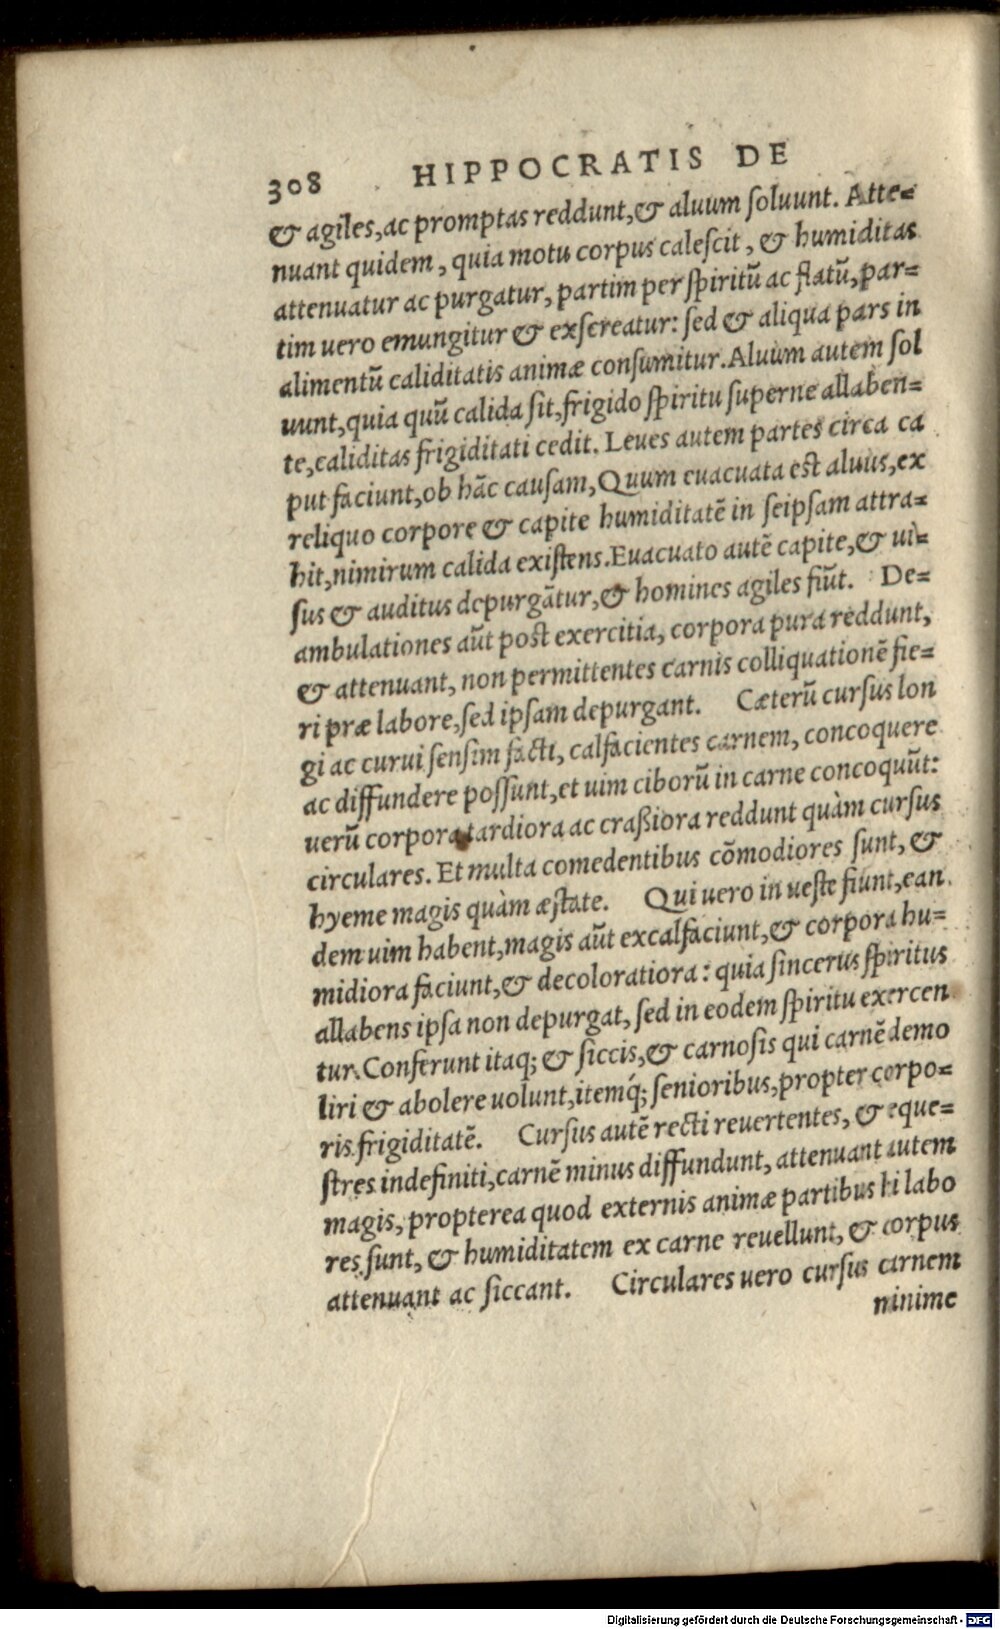 308 HIPPOCRATIS DE
& agiles, ac promptas reddunt, & aluum ſoluunt. Atte=
nuant quidem, quia motu corpus caleſcit, & humiditas
attenuatur ac purgatur, partim per ſpiritū ac flatū, par=
tim uero emungitur & exſcreatur: ſed & aliqua pars in
alimentū caliditatis animæ conſumitur. Aluum autem ſol
uunt, quia quū calida ſit, frigido ſpiritu ſuperne allaben=
te, caliditas frigiditati cedit. Leues autem partes circa ca
put faciunt, ob hāc cauſam, Quum euacuata eſt aluus, ex
reliquo corpore & capite humiditatē in ſeipſam attra=
hit, nimirum calida exiſtens. Euacuato autē capite, & ui=
ſus & auditus depurgātur, & homines agiles fiūt. De=
ambulationes aūt poſt exercitia, corpora pura reddunt,
& attenuant, non permittentes carnis colliquationē fie=
ri præ labore, ſed ipſam depurgant. Cæterū curſus lon
gi ac curui ſenſim facti, calfacientes carnem, concoquere
ac diffundere poſſunt, et uim ciborū in carne concoquūt:
uerū corpora tardiora ac craßiora reddunt quàm curſus
circulares. Et multa comedentibus cōmodiores ſunt, &
hyeme magis quàm æſtate. Qui uero in ueſte fiunt, ean
dem uim habent, magis aūt excalfaciunt, & corpora hu=
midiora faciunt, & decoloratiora: quia ſincerus ſpiritus
allabens ipſa non depurgat, ſed in eodem ſpiritu exercen
tur. Conferunt itaq; & ſiccis, & carnoſis qui carnē demo
liri & abolere uolunt, itemq́; ſenioribus, propter corpo=
ris frigiditatē. Curſus autē recti reuertentes, & eque=
ſtres indefiniti, carnē minus diffundunt, attenuant autem
magis, propterea quod externis animæ partibus hi labo
res ſunt, & humiditatem ex carne reuellunt, & corpus
attenuant ac ſiccant. Circulares uero curſus carnem
minime
Digitalisierung gefördert durch die Deutsche Forschungsgemeinschaft - DFG